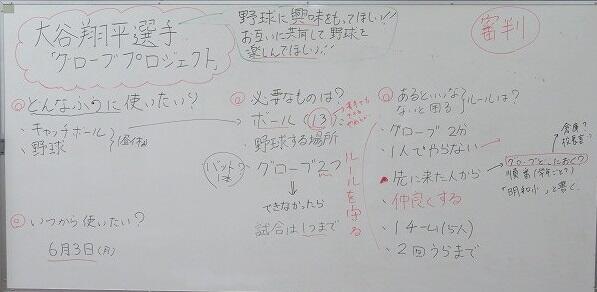 大谷翔平選手
「グローブプロジェクト」
野球に興味をもってほしい!!
お互いに共有して野球を
楽しんでほしい!!
審判
どんなふうに使いたい?
・キャッチボール
・野球
いつから使いたい?
6月3日(月)
必要なものは?
ボール(13)
野球する場所
バットは?
グローブ2つ
できなかったら
試合は1つまで
ルールを守る
あるといいな
ないと困る
ルールは?
・グローブ2分
・1人でやらない
・先に来た人から
・仲良くする
・1チーム(5人)
・2回うらまで
倉庫?
「明和小」と書く